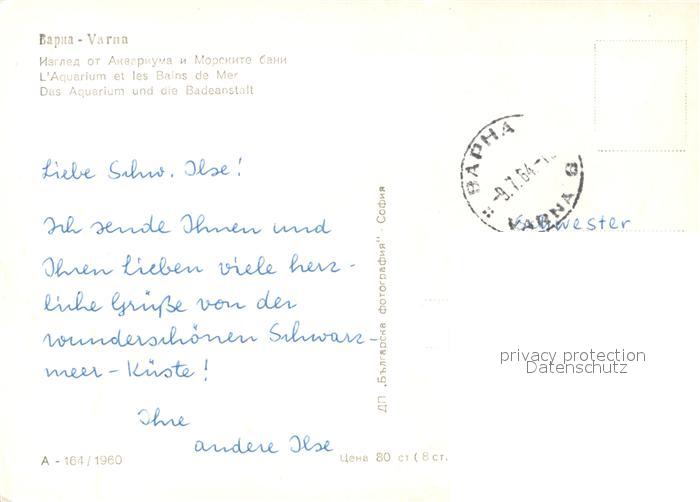 Варна - Varna
Изглед от Аквариума и Морските бани
L'Aquarium et les Bains de Mer
Das Aquarium und die Badeanstalt
Liebe Schw. Ilse!
Ich sende Ihnen und
Ihren Lieben viele herz-
liche Grüße von der
wunderschönen Schwarz-
meer-Küste!
Ihre
andere Ilse
А - 164/1960
Цена 80 ст (8 ст.
ДП „Българска фотография" - София
ВАРНА
-9.7.64-
VARNA
Schwester
privacy protection
Datenschutz